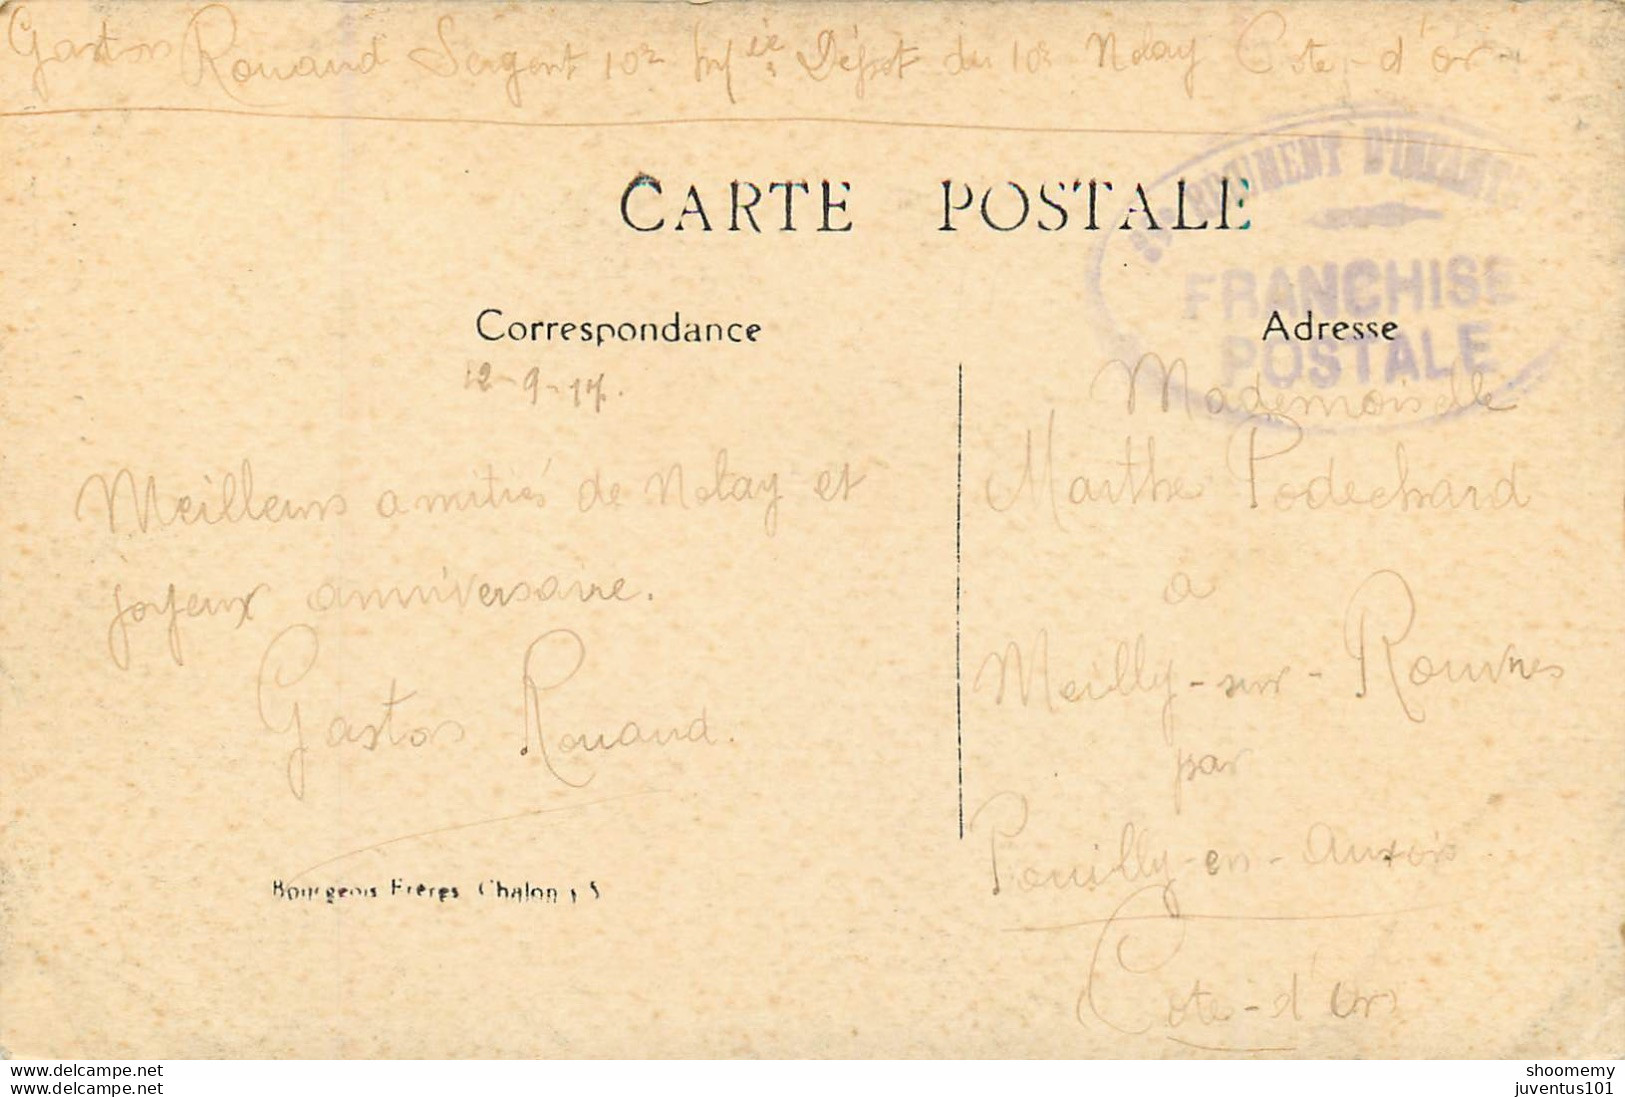 Gaston Rouaud Sergent 10e Infie Dépôt du 10e Nolay Côte-d'or
CARTE POSTALE
REGIMENT D'INFANTERIE
FRANCHISE
POSTALE
Correspondance
Adresse
12-9-17.
Mademoiselle
Marthe Podechard
à
Meilly-sur-Rouvres
par
Pouilly-en-Auxois
Côte-d'Or
Meilleurs amitiés de Nolay et
joyeux anniversaire.
Gaston Rouaud.
Bourgeois Frères Chalon s S
delcampe.net
delcampe.net
shoomemy
juventus101